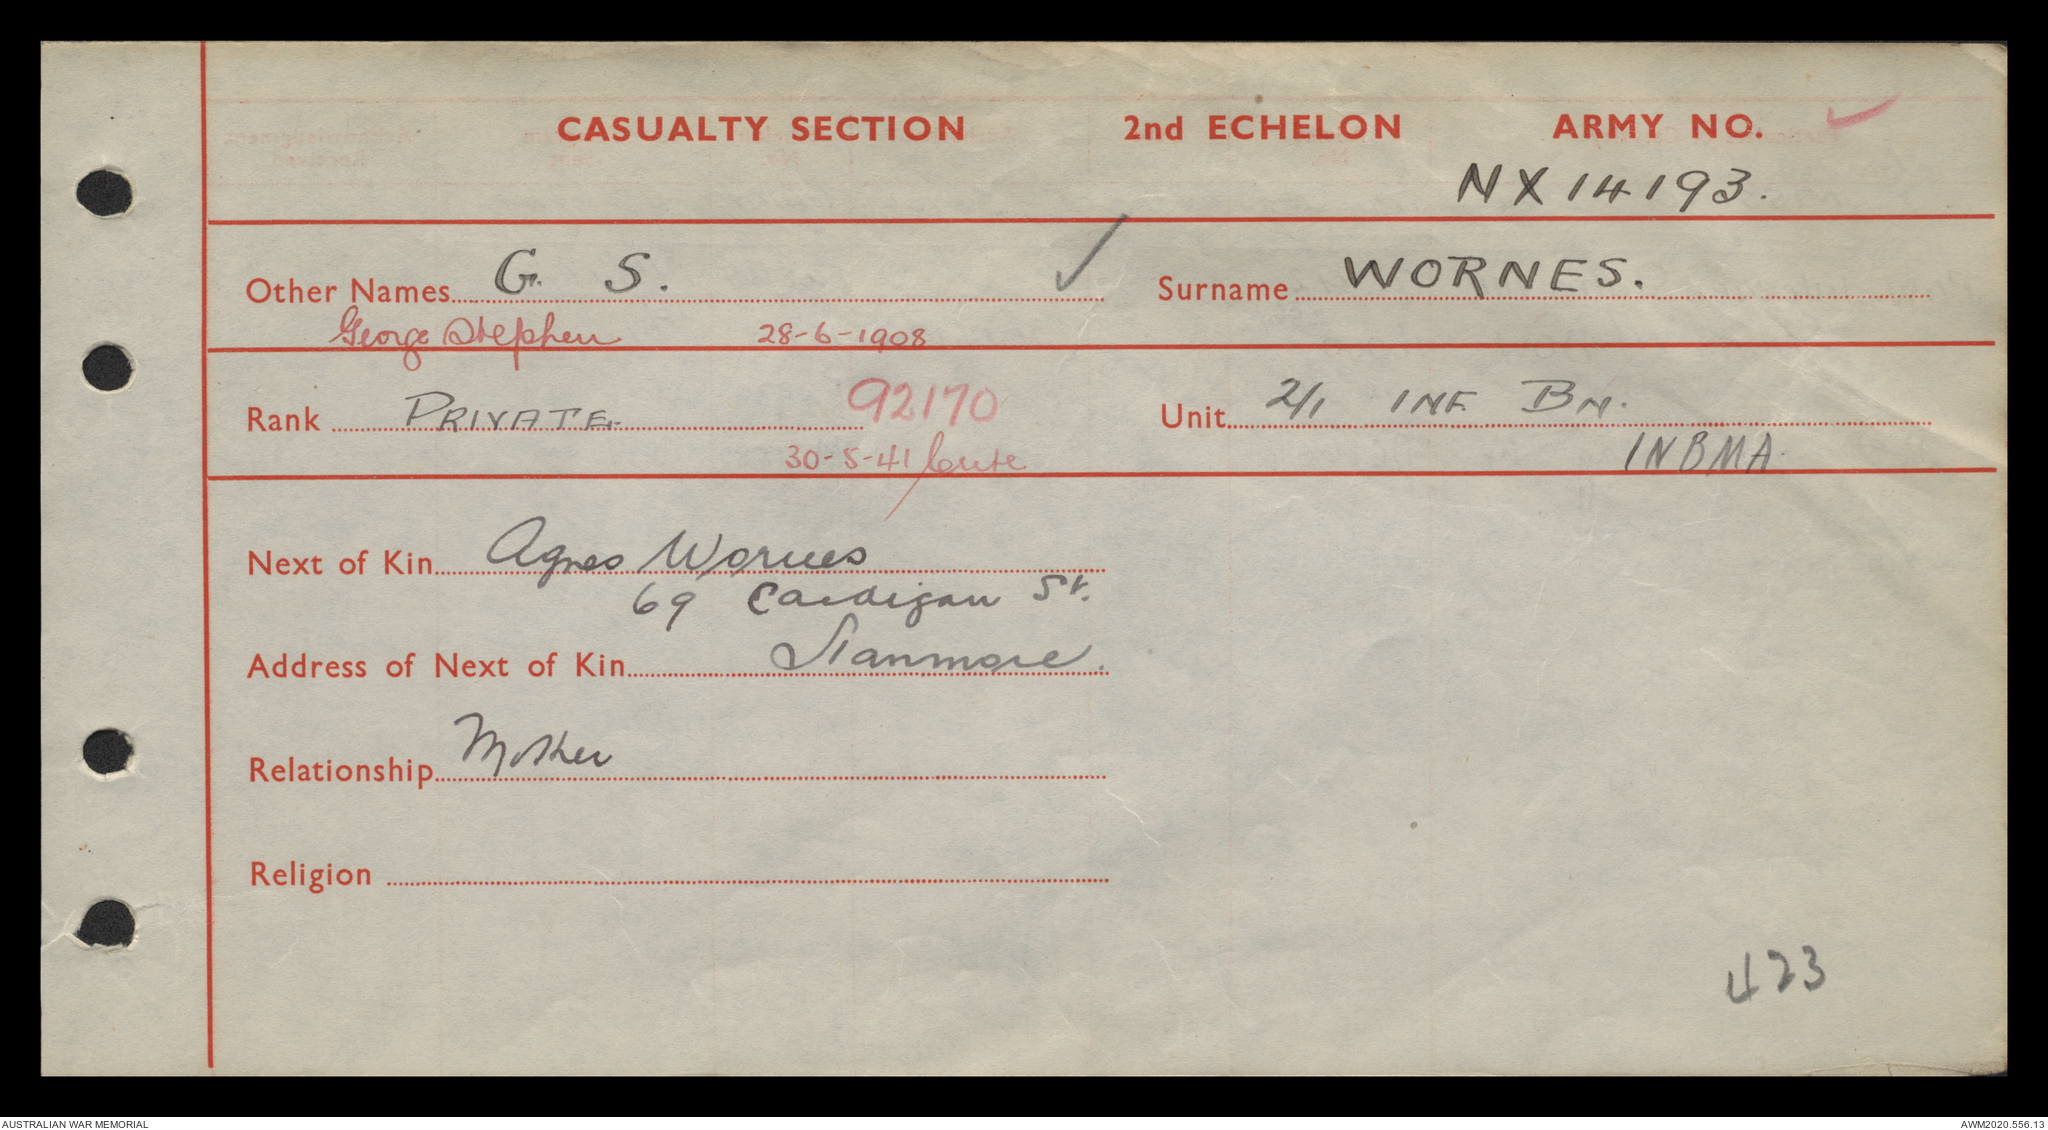 CASUALTY SECTION 2nd ECHELON ARMY NO.
NX14193.
Other Names G. S. Surname WORNES.
George Stephen 28-6-1908
Rank PRIVATE 92170 Unit 2/1 INF BN.
30-5-41 Crete INBMA
Next of Kin Agnes Wornes
69 Cardigan St.
Address of Next of Kin Stanmore.
Relationship Mother
Religion
423
AUSTRALIAN WAR MEMORIAL AWM2020.556.13